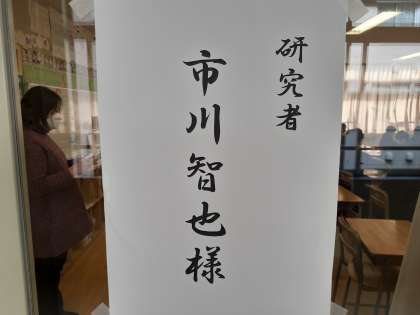 研究者
市川智也様